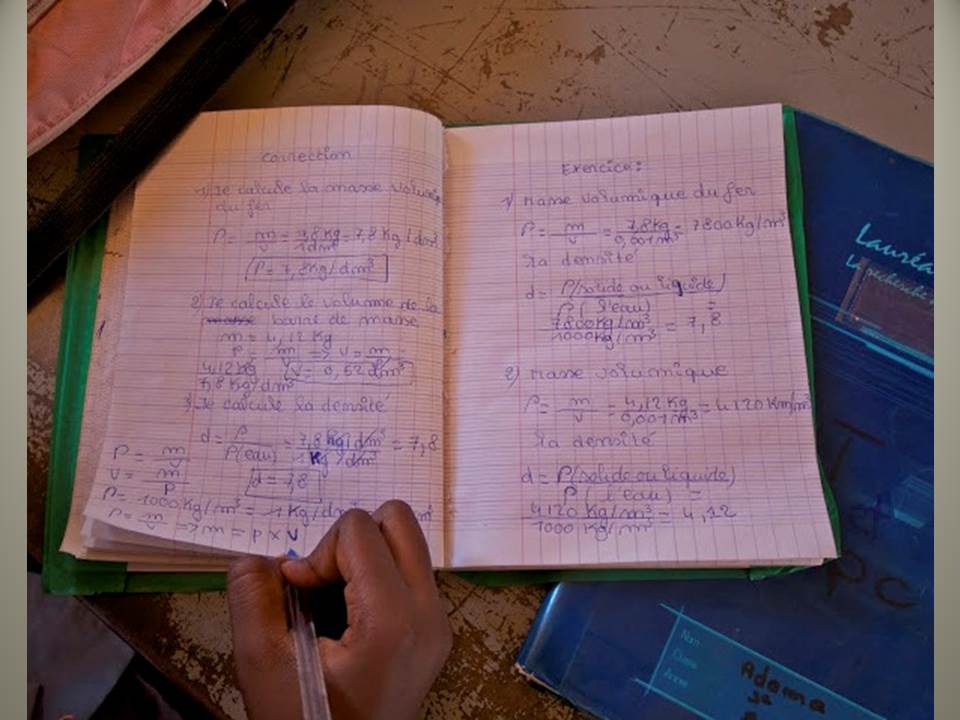 Correction
1) Je calcule la masse volumique
du fer
P = m/v = 7,8 Kg/1dm³ = 7,8 Kg/dm³
P = 7,8 Kg/dm³
2) Je calcule le volume de la
barre de masse
m = 4,12 Kg
P = m/v => v = m
4,12 Kg/7,8 Kg/dm³ V = 0,52 dm³
3) Je calcule la densité
d = P/P(eau) = 7,8 Kg/dm³/1 Kg/dm³ = 7,8
d = 7,8
P = m/v
V = m/P
P = 1000 Kg/m³ = 1 Kg/dm³
P = m/v => m = P x V
Exercice :
1) Masse volumique du fer
P = m/v = 7,8 Kg/0,001 m³ = 7800 Kg/m³
la densité
d = P(solide ou liquide)/P(l'eau) =
7800 Kg/m³/1000 Kg/m³ = 7,8
2) Masse volumique
P = m/v = 4,12 Kg/0,001 m³ = 4120 Km/m³
la densité
d = P(solide ou liquide)/P(l'eau) =
4120 Kg/m³/1000 Kg/m³ = 4,12
Lauréa
La recherche
PC
Nom
Classe
Année
Adama